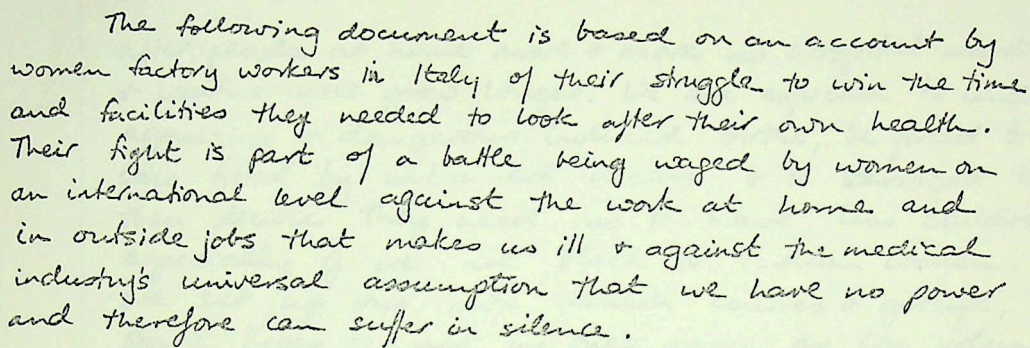 The following document is based on an account by
women factory workers in Italy of their struggle to win the time
and facilities they needed to look after their own health.
Their fight is part of a battle being waged by women on
an international level against the work at home and
in outside jobs that makes us ill & against the medical
industry's universal assumption that we have no power
and therefore can suffer in silence.